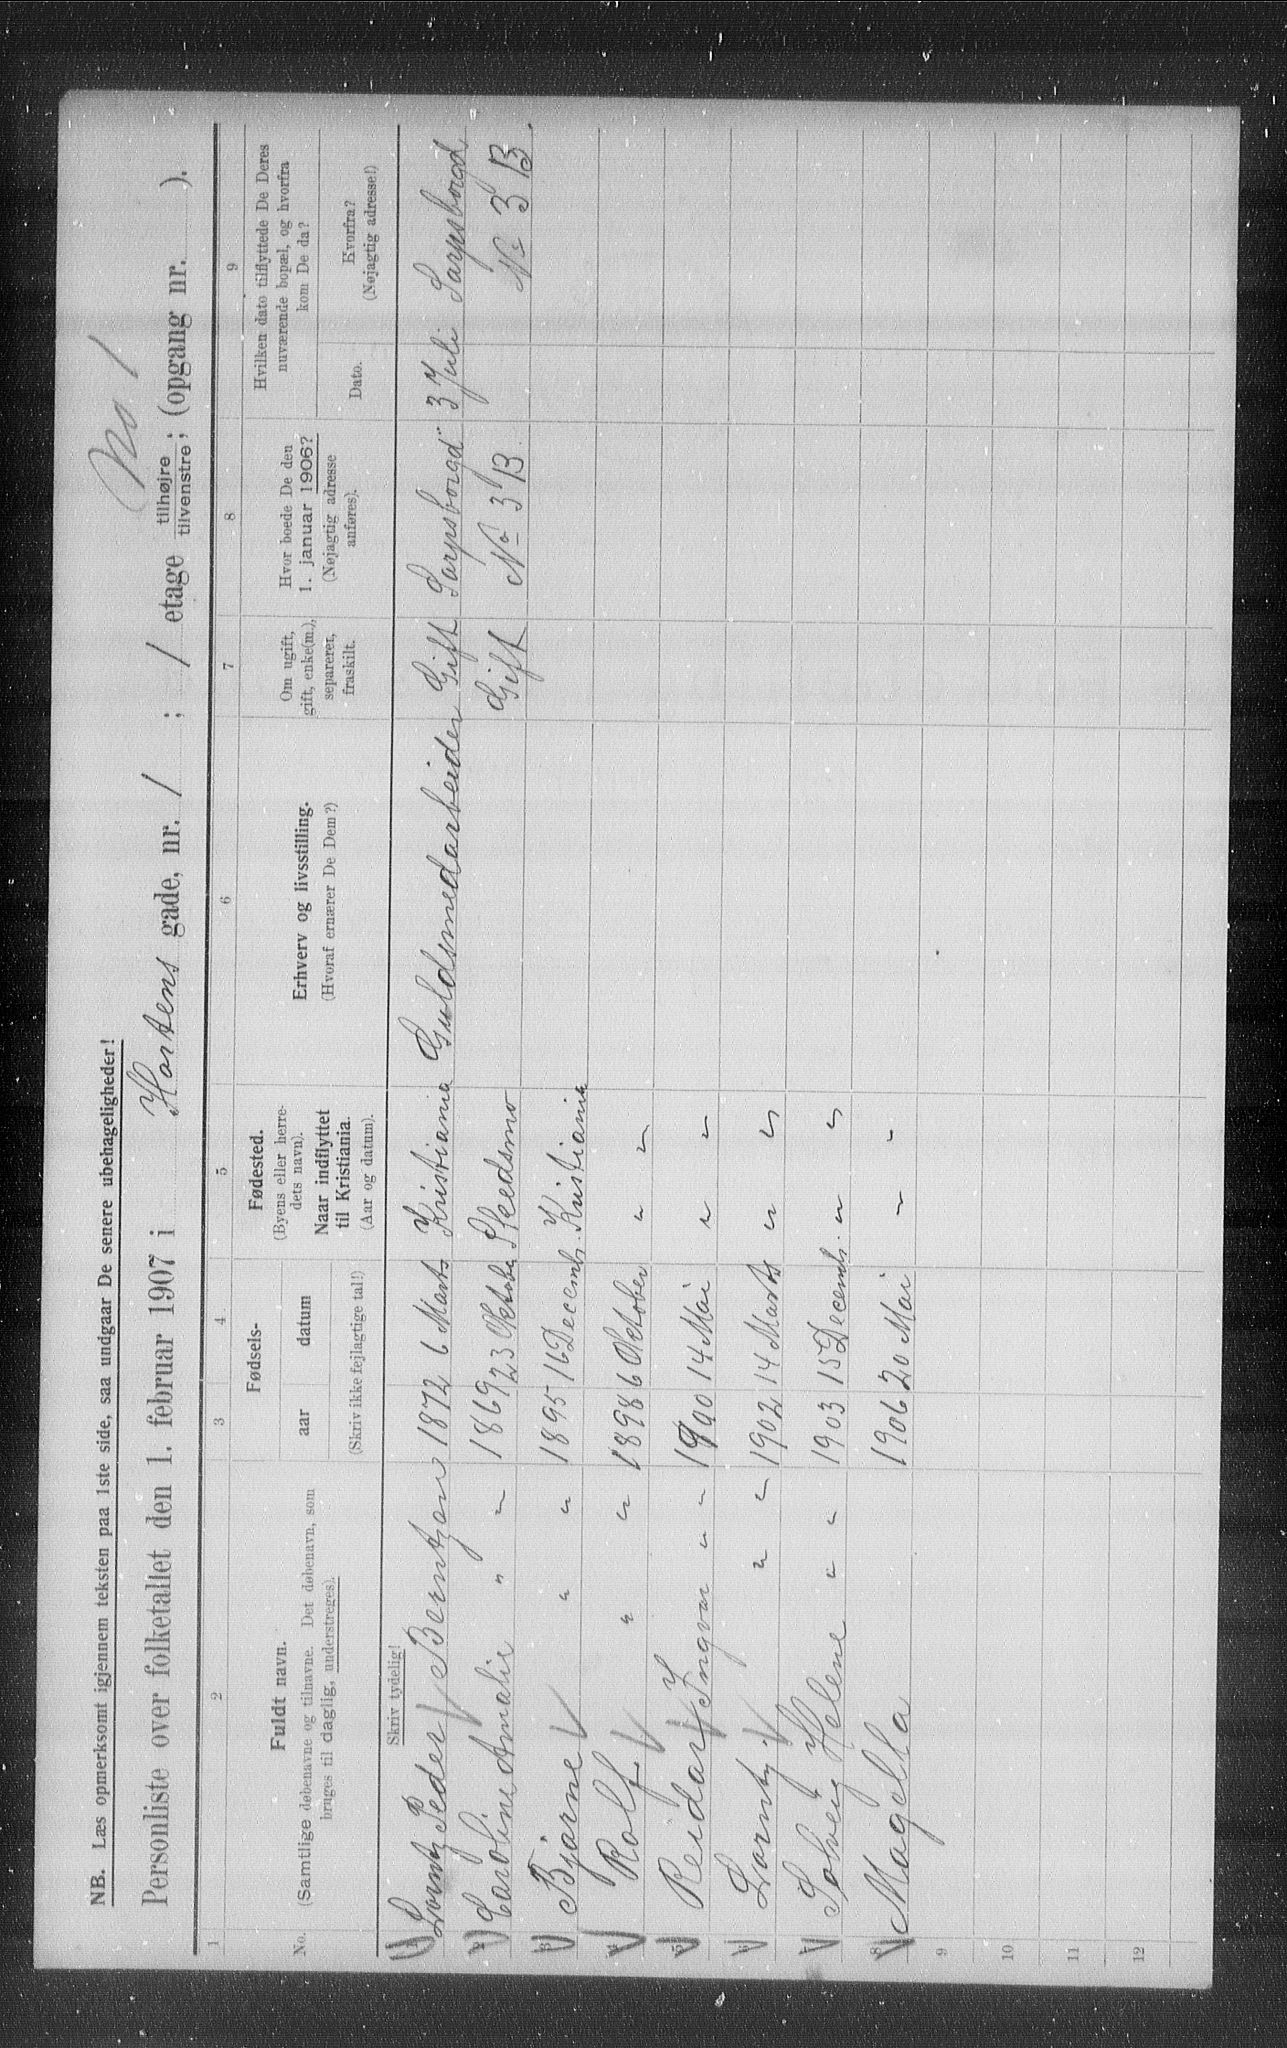 No 1
NB. Læs opmerksomt igjennem teksten paa 1ste side, saa undgaar De senere ubehageligheder!
Personliste over folketallet den 1. februar 1907 i Hortens gade, nr. 1 ; 1 etage tilhøjre tilvenstre ; (opgang nr. ).
1 2 3 4 5 6 7 8 9
No.
Fuldt navn.
(Samtlige døbenavne og tilnavne. Det døbenavn, som
bruges til daglig, understreges).
Fødsels-
aar datum
(Skriv ikke fejlagtige tal!)
Fødested.
(Byens eller herre-
dets navn).
Naar indflyttet
til Kristiania.
(Aar og datum).
Erhverv og livsstilling.
(Hvoraf ernærer De Dem?)
Om ugift,
gift, enke(m.),
separerer,
fraskilt.
Hvor boede De den
1. januar 1906?
(Nøjagtig adresse
anføres).
Hvilken dato tilflyttede De Deres
nuværende bopæl, og hvorfra
kom De da?
Dato.
Hvorfra?
(Nøjagtig adresse!)
Skriv tydelig!
1 Lorentz Peder Berntzen 1872 6 Marts Kristiania Guldsmedarbeider Gift Sarpsborgd 3 Juli Sarpsborgd
2 Caroline Amalie " " 1869 23 Oktober Skedsmo Gift No 3 B. No 3 B.
3 Bjarne " " 1895 16 Decemb. Kristiania
4 Rolf " " 1898 6 Oktober " "
5 Reidar Yngvar " " 1900 14 Mai " "
6 " " 1902 14 Marts " "
7 Solveig Helene " " 1903 15 Decemb. " "
8 Magella 1906 20 Mai " "
9
10
11
12